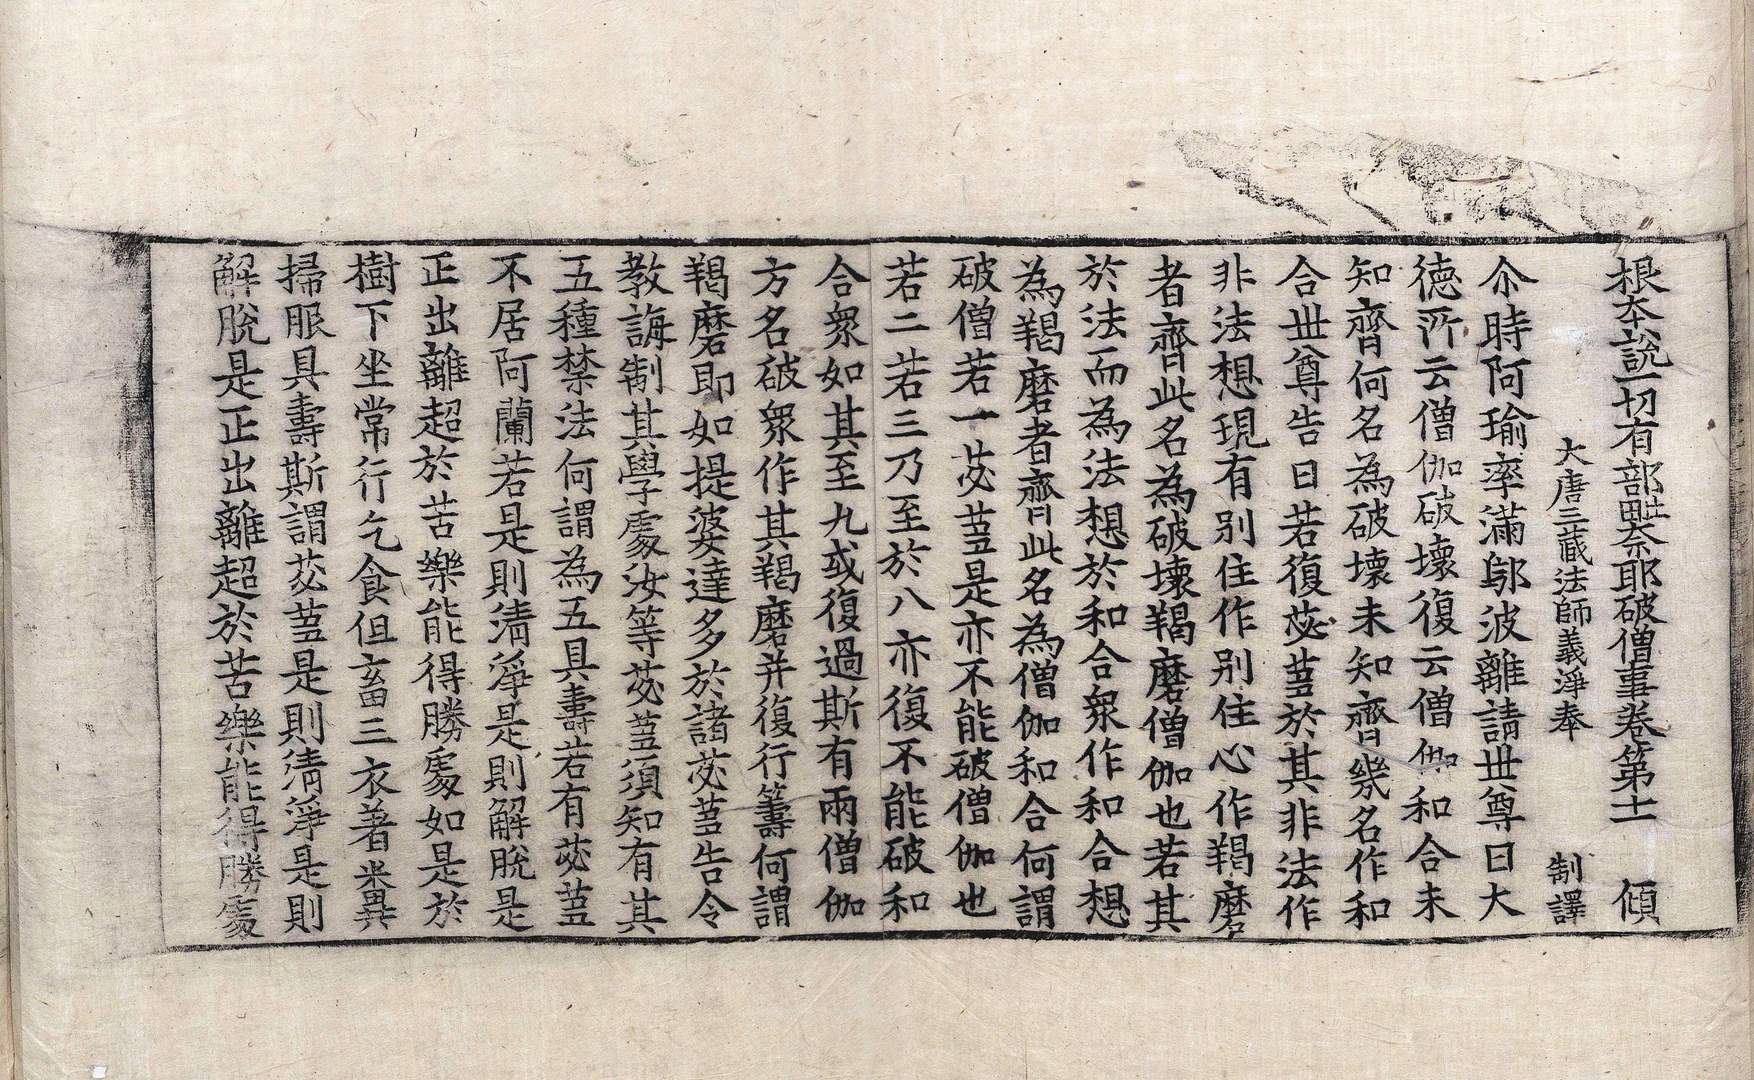 根本說一切有部毗奈耶破僧事卷第十一 傾
大唐三藏法師義淨奉 制譯
尒時阿瑜率滿鄔波離請世尊曰大
德所云僧伽破壞復云僧伽和合未
知齊何名為破壞未知齊幾名作和
合世尊告曰若復苾蒭於其非法作
非法想現有別住作別住心作羯磨
者齊此名為破壞羯磨僧伽也若其
於法而為法想於和合衆作和合想
為羯磨者齊此名為僧伽和合何謂
破僧若一苾蒭是亦不能破僧伽也
若二若三乃至於八亦復不能破和
合衆如其至九或復過斯有兩僧伽
方名破衆作其羯磨并復行籌何謂
羯磨即如提婆達多於諸苾蒭告令
教誨制其學處汝等苾蒭須知有其
五種禁法何謂為五具壽若有苾蒭
不居阿蘭若是則清淨是則解脫是
正出離超於苦樂能得勝處如是於
樹下坐常行乞食但畜三衣著糞
掃服具壽斯謂苾蒭是則清淨是則
解脫是正出離超於苦樂能得勝處